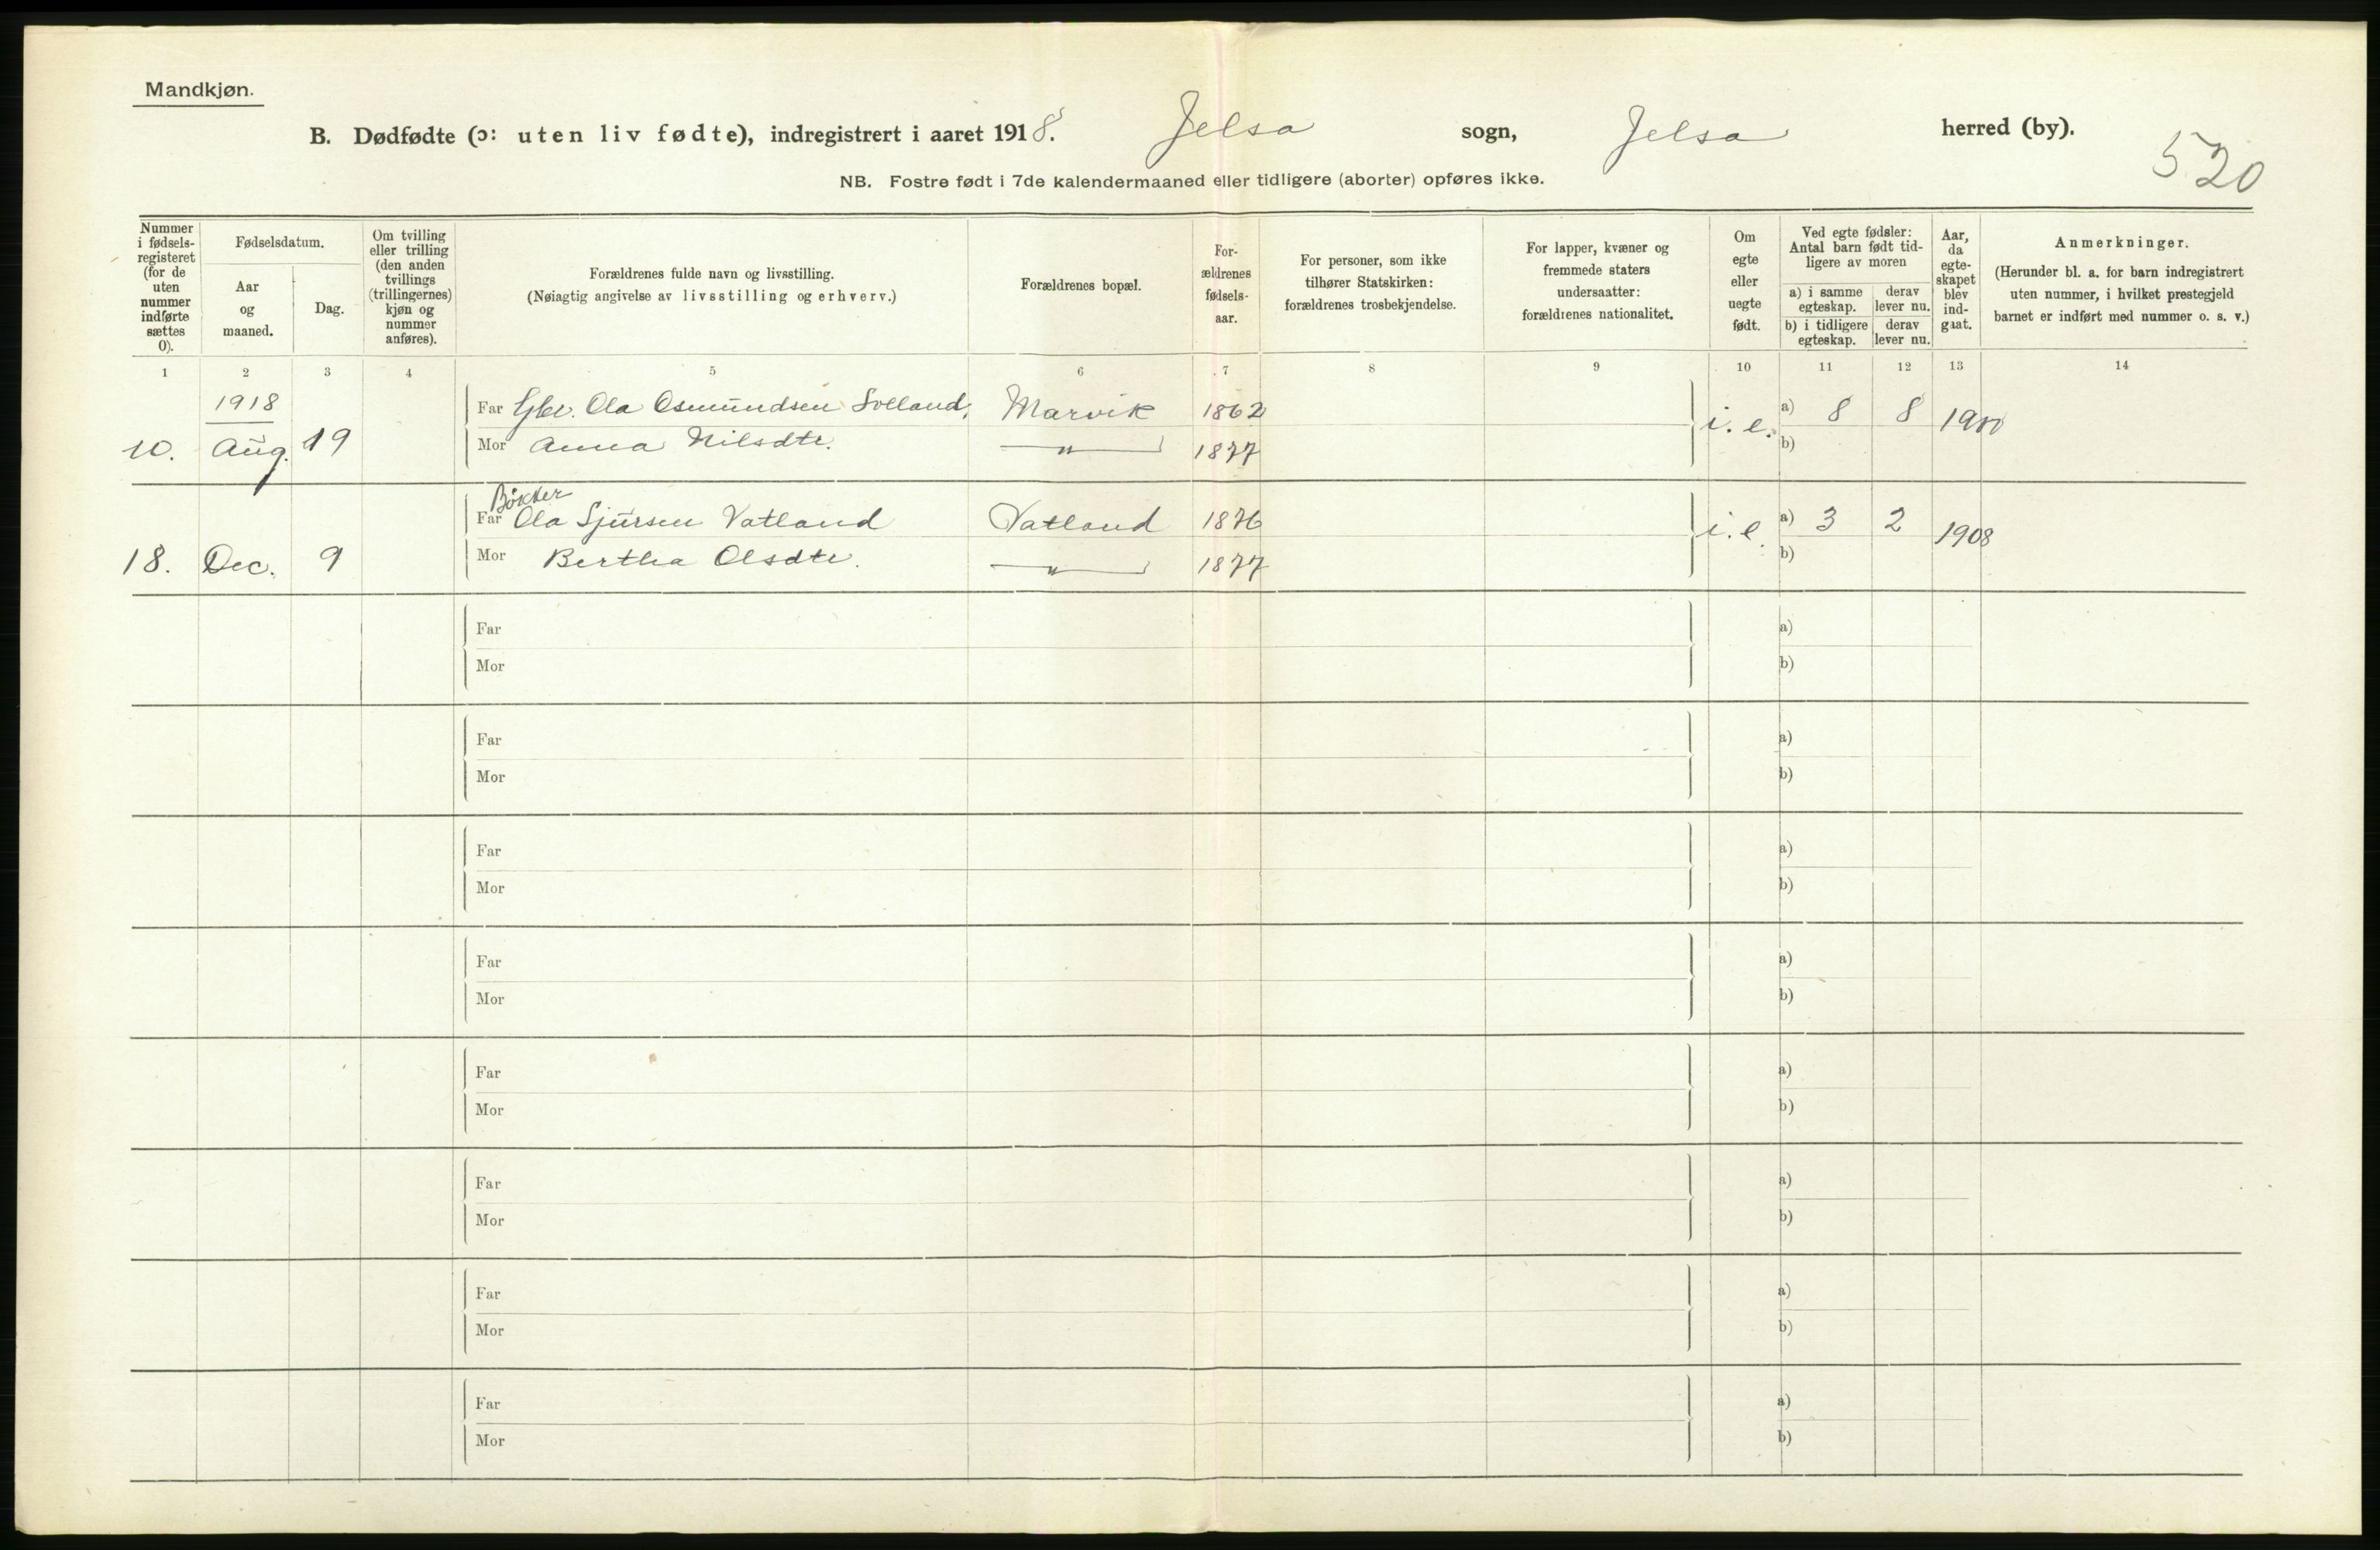 Mandkjøn.
B. Dødfødte (ɔ: uten liv fødte), indregistrert i aaret 1918. Jelsa sogn, Jelsa herred (by).
520
NB. Fostre født i 7de kalendermaaned eller tidligere (aborter) opføres ikke.
Nummer i fødselsregisteret (for de uten nummer indførte sættes 0).
Fødselsdatum.
Aar og maaned.
Dag.
Om tvilling eller trilling (den anden tvillings (trillingernes) kjøn og nummer anføres).
Forældrenes fulde navn og livsstilling.
(Nøiagtig angivelse av livsstilling og erhverv.)
Forældrenes bopæl.
Forældrenes fødselsaar.
For personer, som ikke tilhører Statskirken: forældrenes trosbekjendelse.
For lapper, kvæner og fremmede staters undersaatter: forældrenes nationalitet.
Om egte eller uegte født.
Ved egte fødsler: Antal barn født tidligere av moren
a) i samme egteskap. derav lever nu.
b) i tidligere egteskap. derav lever nu.
Aar, da egteskapet blev indgaat.
Anmerkninger.
(Herunder bl. a. for barn indregistrert uten nummer, i hvilket prestegjeld barnet er indført med nummer o. s. v.)
1 2 3 4 5 6 7 8 9 10 11 12 13 14
1918
Far Gbr. Ola Osmundsen Solland, Marvik 1862 i. e. a) 8 8 1900
10. Aug. 19 Mor Anna Nilsdtr. " 1877 b)
Bøkker
Far Ola Sjursen Vatland Vatland 1876 i. e. a) 3 2 1908
18. Dec. 9 Mor Bertha Olsdtr. " 1877 b)
Far a)
Mor b)
Far a)
Mor b)
Far a)
Mor b)
Far a)
Mor b)
Far a)
Mor b)
Far a)
Mor b)
Far a)
Mor b)
Far a)
Mor b)